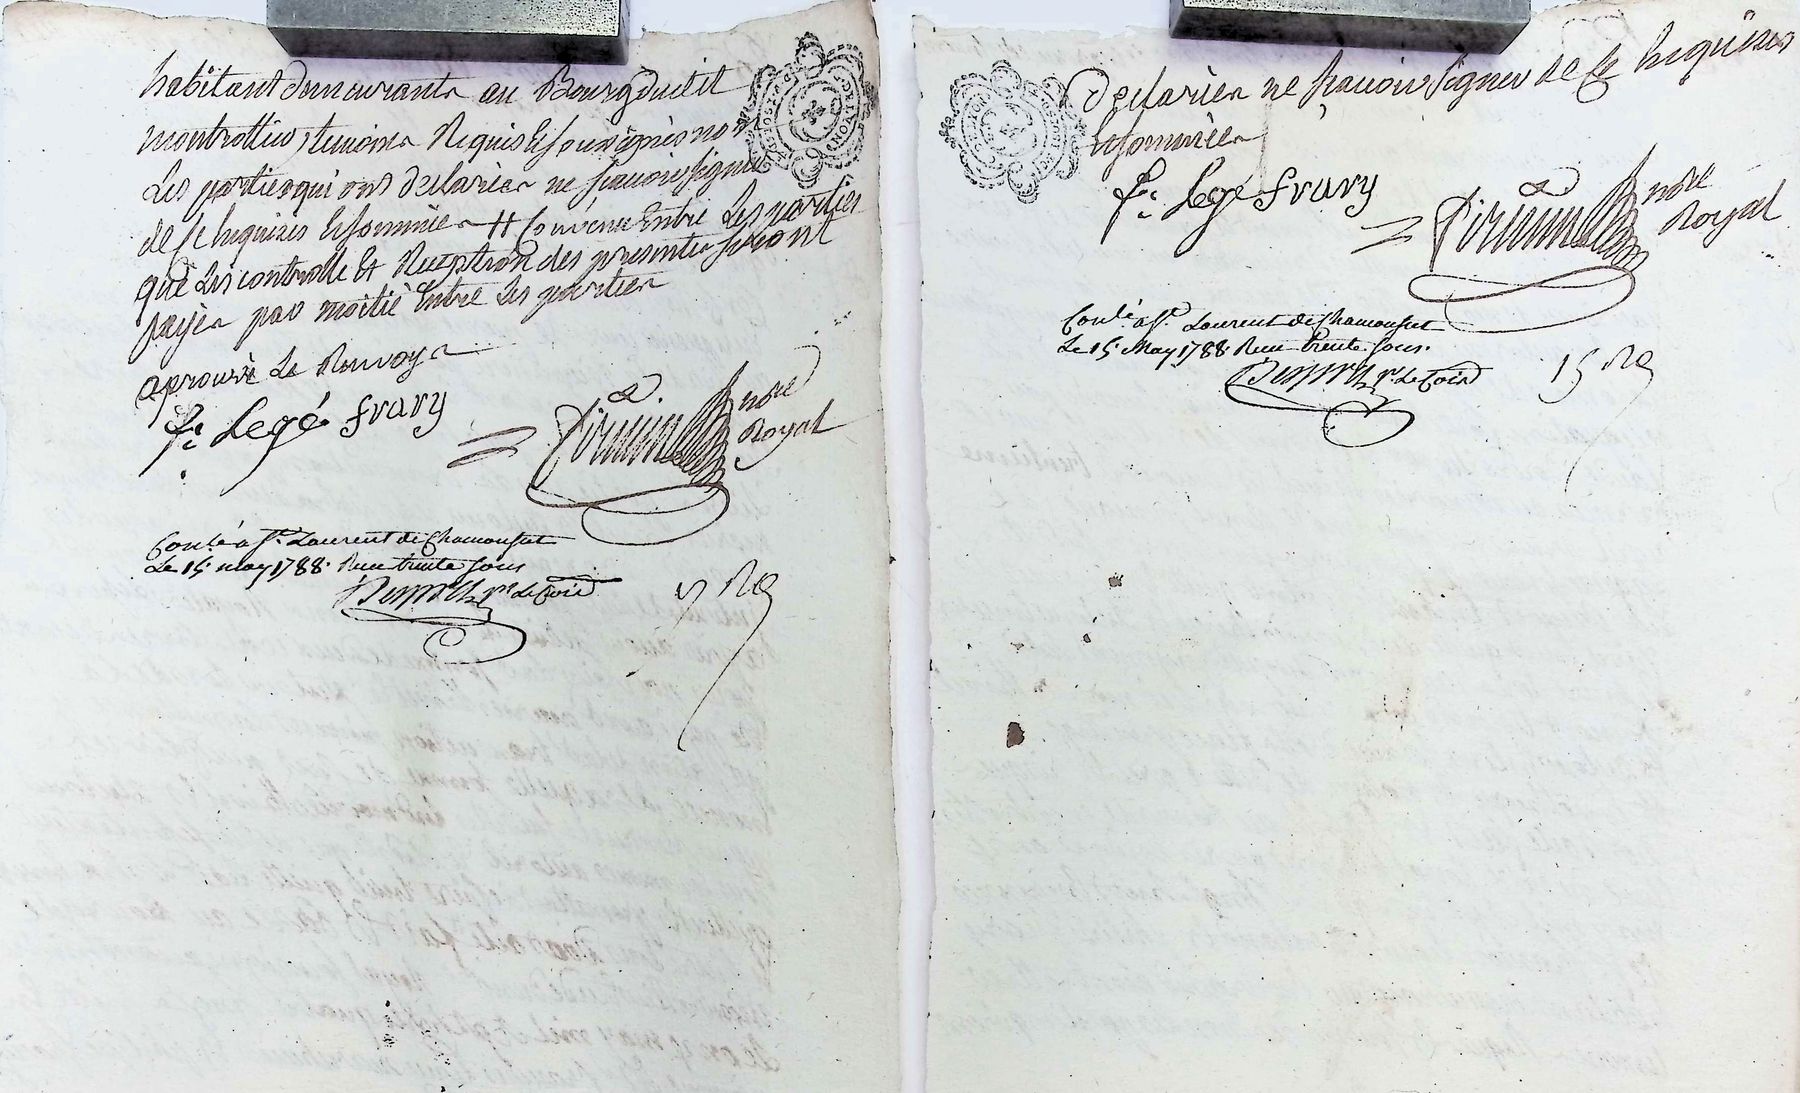 habitant demeurants au Bourg dudit
montrottier, temoins Requis & soussignés non
Les parties qui ont declarées ne sçavoir signer
de ce Enquises & sommées # Convenu Entre Les parties
que Les controlle Et Reception des presentes seront
payés par moitié Entre Les parties
aprouvé Le Renvoy
fr Legé fvavy
not.re
Royal
Con.lé à St. Laurent de Chamousset
Le 15. may 1788. Reçu trente sous
declarées ne sçavoir signer de ce Enquises
& sommées
fr Lege fvavy
not.re
Royal
Con.lé à St. Laurent de Chamousset
Le 15. May 1788. Reçu trente sous.